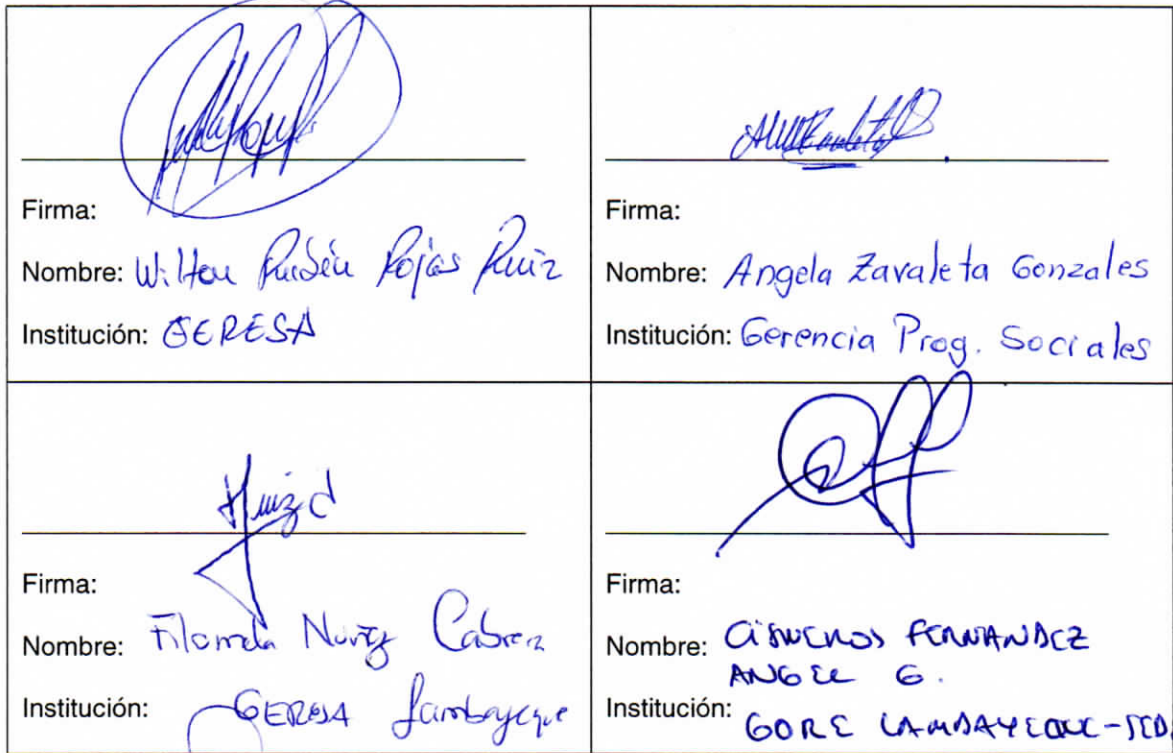 Firma:
Nombre: Wilton Rubén Rojas Ruiz
Institución: GERESA
Firma:
Nombre: Angela Zavaleta Gonzales
Institución: Gerencia Prog. Sociales
Firma:
Nombre: Cabrera
Institución: GERESA Lambayeque
Firma:
Nombre: CISNEROS FERNANDEZ
ANGEL G.
Institución: GORE LAMBAYEQUE